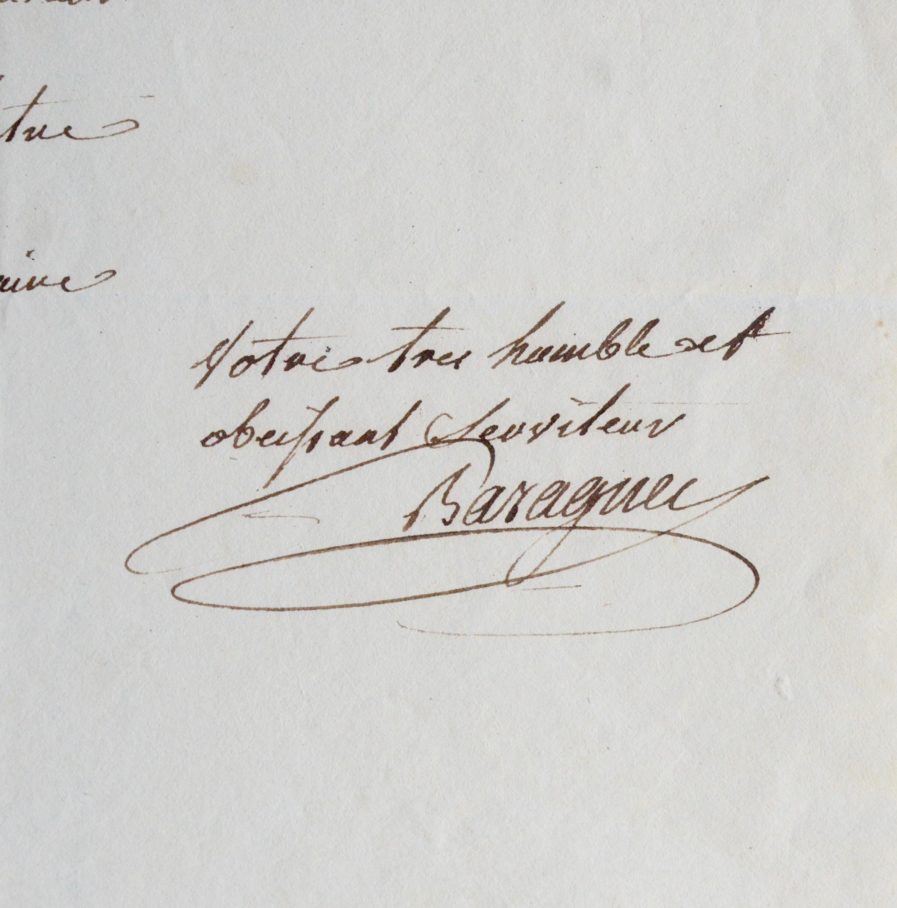 Votre tres humble et
obeissant Serviteur
Baraguey